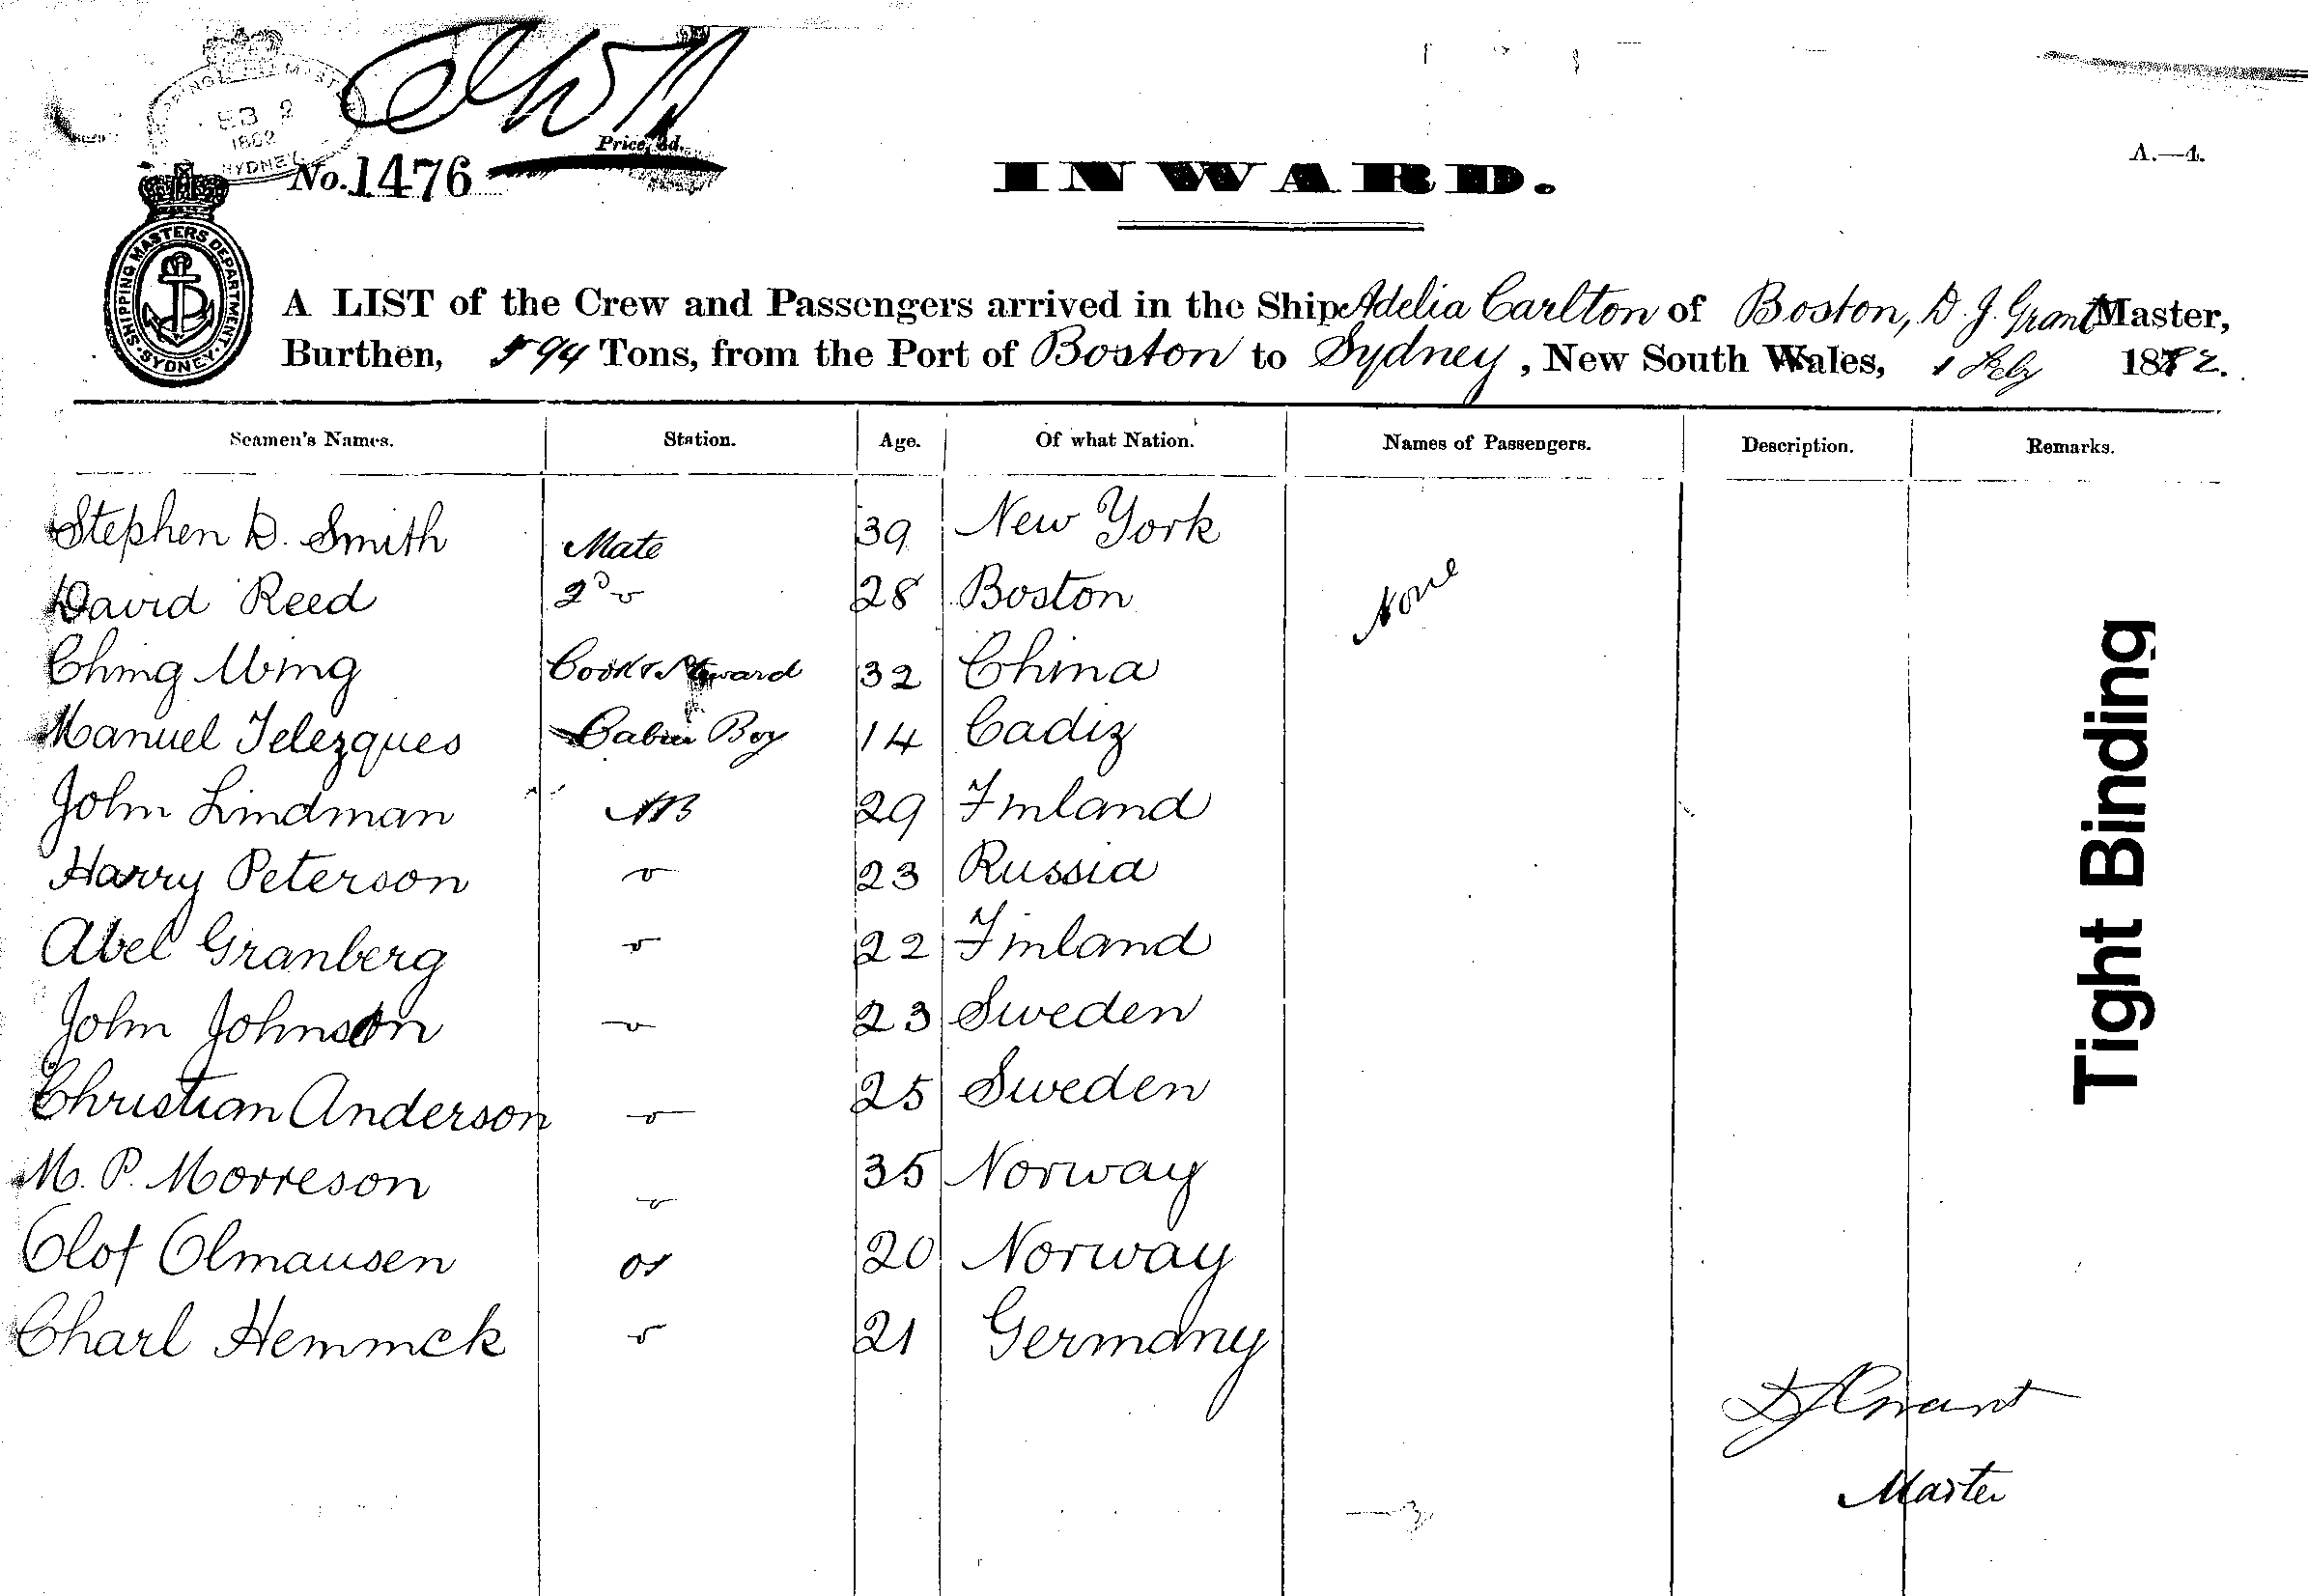 SHIPPING MASTERS DEPARTMENT. SYDNEY.
Price, 3d.
No. 1476
INWARD.
A.—4.
A LIST of the Crew and Passengers arrived in the Ship Adelia Carlton of Boston, D. J. Grant Master,
Burthen, 594 Tons, from the Port of Boston to Sydney, New South Wales, 1 Feby 1882.
Seamen's Names. Station. Age. Of what Nation. Names of Passengers. Description. Remarks.
Stephen D. Smith Mate 39 New York
David Reed 2D " 28 Boston None
Ching Wing Cook & Steward 32 China
Manuel Telezques Cabin Boy 14 Cadiz
John Lindman AB 29 Finland
Harry Peterson " 23 Russia
Abel Granberg " 22 Finland
John Johnson " 23 Sweden
Christian Anderson " 25 Sweden
M. P. Morreson " 35 Norway
Olof Olmausen OS 20 Norway
Charl Hemmck " 21 Germany
D J Grant
Master
Tight Binding